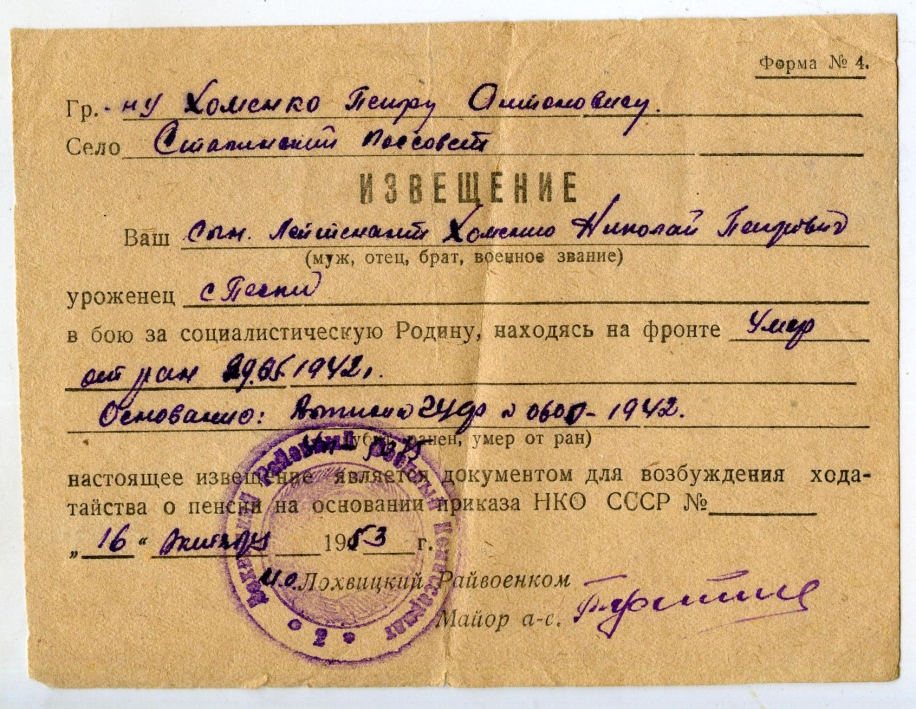 Форма № 4.
Гр.-ну Хоменко Петру Антоновичу.
Село Сталинский поссовет
ИЗВЕЩЕНИЕ
Ваш сын. Лейтенант Хоменко Николай Петрович
(муж, отец, брат, военное звание)
уроженец с Пески
в бою за социалистическую Родину, находясь на фронте Умер
от ран 1942г.
Основание: 1942.
ранен, умер от ран)
настоящее извещение является документом для возбуждения хода-
тайства о пенсии на основании приказа НКО СССР №
„ 16 “ октября 1953 г.
и.о. Лохвицкий Райвоенком
Майор а-с.